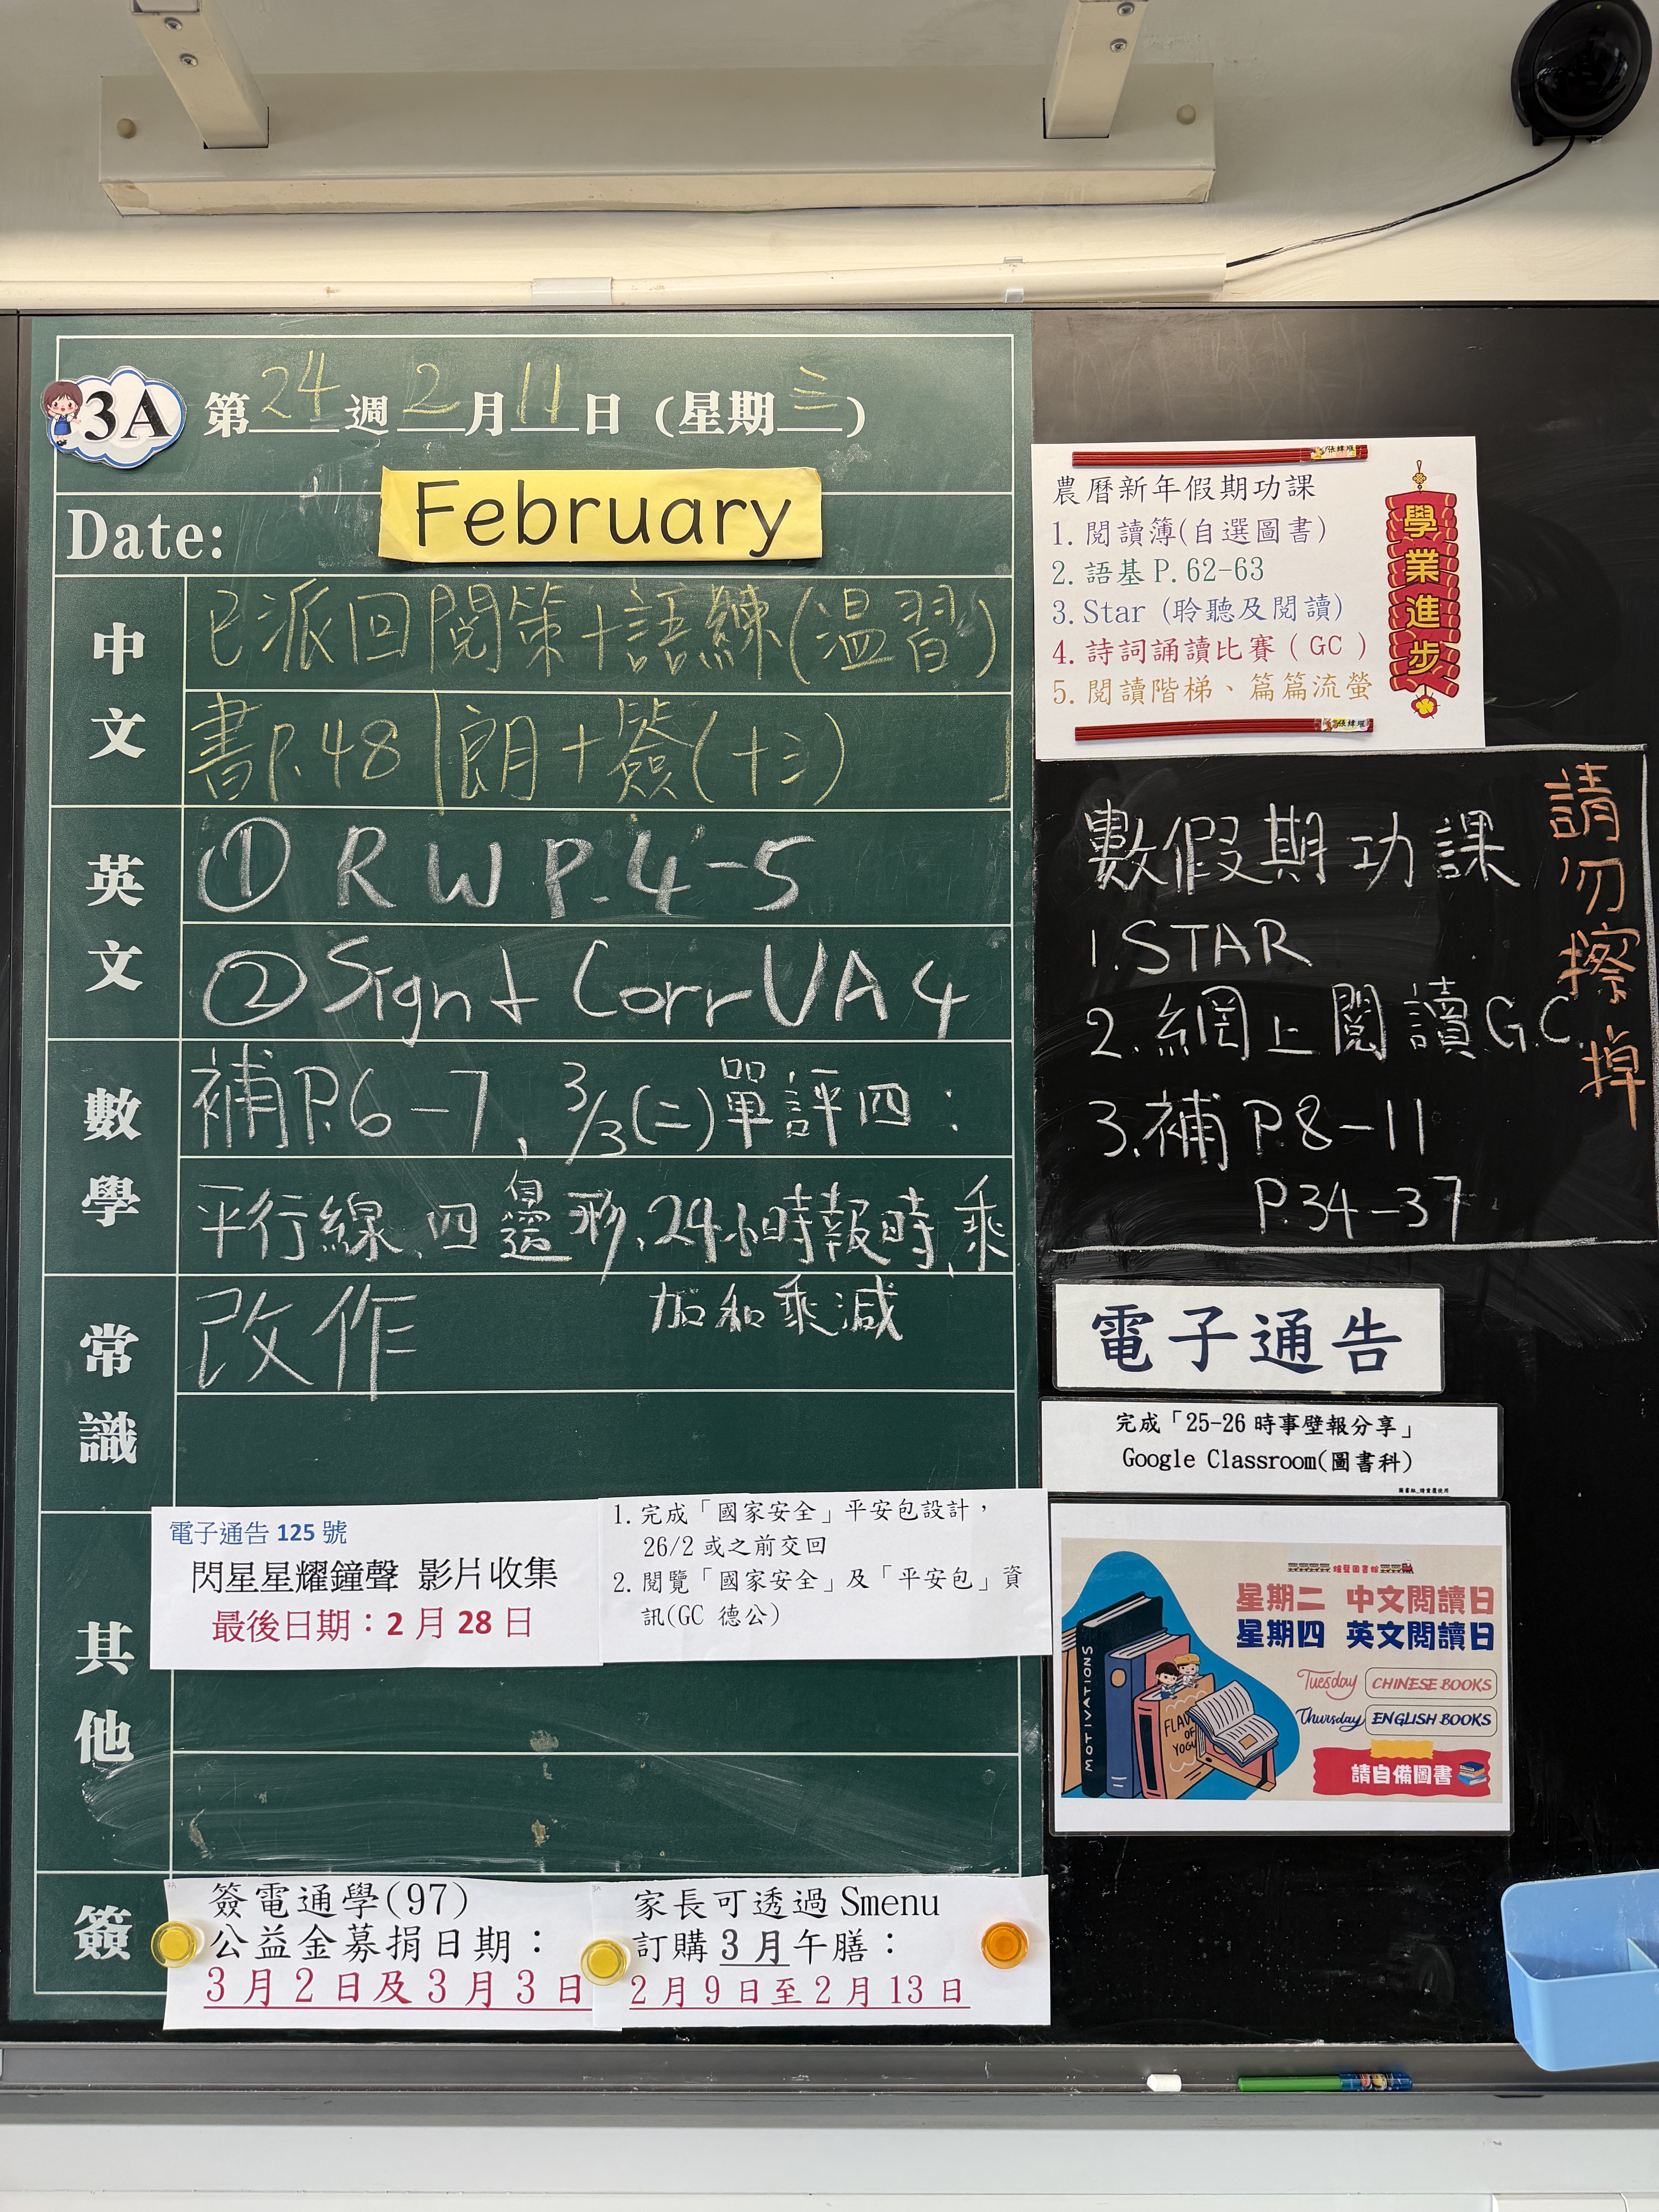 3A
第24週2月11日(星期三)
Date:
February
中文
已派回閱策+語練(温習)
書P.48 朗+簽(十三)
英文
① RW P.4-5
② Sign + Corr UA4
數學
補P.6-7、3/3(二)單評四:
平行線、四邊形、24小時報時、乘
加和乘減
常識
改作
其他
電子通告 125 號
閃星星耀鐘聲 影片收集
最後日期:2 月 28 日
1. 完成「國家安全」平安包設計,
26/2 或之前交回
2. 閱覽「國家安全」及「平安包」資
訊(GC 德公)
簽
簽電通學(97)
公益金募捐日期:
3月2日及3月3日
家長可透過 Smenu
訂購 3 月午膳:
2月9日至2月13日
農曆新年假期功課
1. 閱讀簿(自選圖書)
2. 語基 P. 62-63
3. Star (聆聽及閱讀)
4. 詩詞誦讀比賽 ( GC )
5. 閱讀階梯、篇篇流螢
學業進步
請勿擦掉
數假期功課
1. STAR
2. 網上閱讀 G.C.
3. 補 P.8-11
P.34-37
電子通告
完成「25-26 時事壁報分享」
Google Classroom(圖書科)
星期二 中文閱讀日
星期四 英文閱讀日
Tuesday CHINESE BOOKS
Thursday ENGLISH BOOKS
請自備圖書
MOTIVATIONS